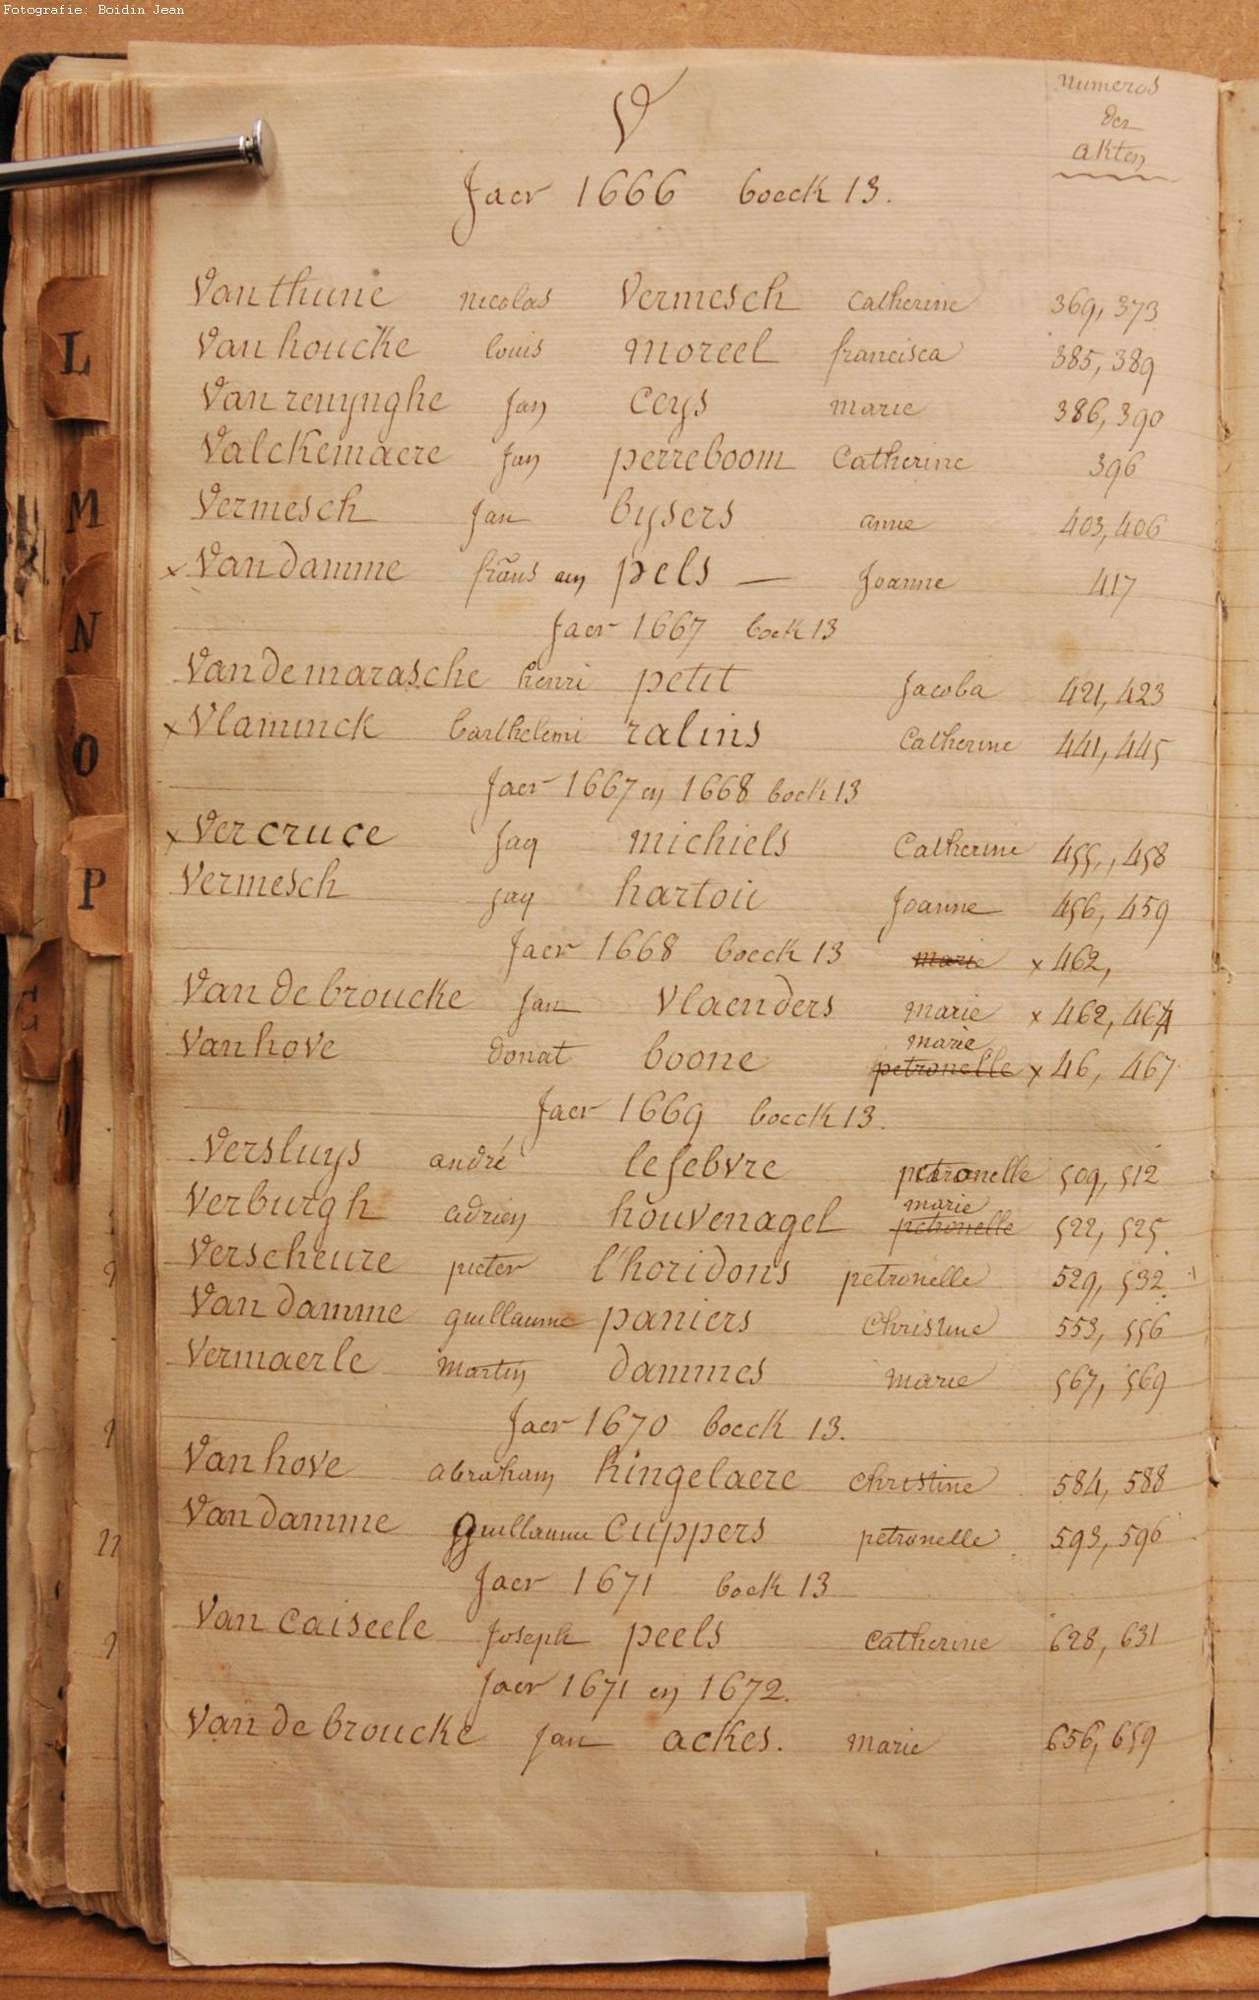 Fotografie: Boidin Jean
V
Numeros
der
akten
Jaer 1666 boeck 13.
Vanthune nicolas Vermesch Catherine 369, 373
Vanhoucke louis moreel francisca 385, 389
Vanrenynghe Jan Ceys marie 386, 390
Valckemaere Jan perreboom Catherine 396
Vermesch Jan bysers anne 403, 406
x Van damme frans en pels — Joanne 417
Jaer 1667 boek 13
Vandemarasche henri petit Jacoba 421, 423
x Vlaminck barthelemi ralins Catherine 441, 445
Jaer 1667 en 1668 boek 13
x Vercruce Jaq michiels Catherine 455, 458
Vermesch Jaq hartou Joanne 456, 459
Jaer 1668 boeck 13 marie x 462,
Van de broucke Jan Vlaenders marie x 462, 464
marie
Vanhove donat boone petronelle x 46, 467
Jaer 1669 boeck 13.
Versluys andré lefebvre petronelle 509, 512
marie
Verburgh adrien houvenagel petronelle 522, 525
Verscheure pieter l'horidons petronelle 529, 532
Van damme guillaume paniers Christine 553, 556
Vermaerle martin dammes marie 567, 569
Jaer 1670 boeck 13.
Vanhove abraham hingelaere christine 584, 588
Van damme guillaume Cuppers petronelle 593, 596
Jaer 1671 boek 13
Van Caiseele Joseph peels Catherine 628, 631
Jaer 1671 en 1672.
Van de broucke Jan ackes. marie 656, 659
L
M
N
O
P